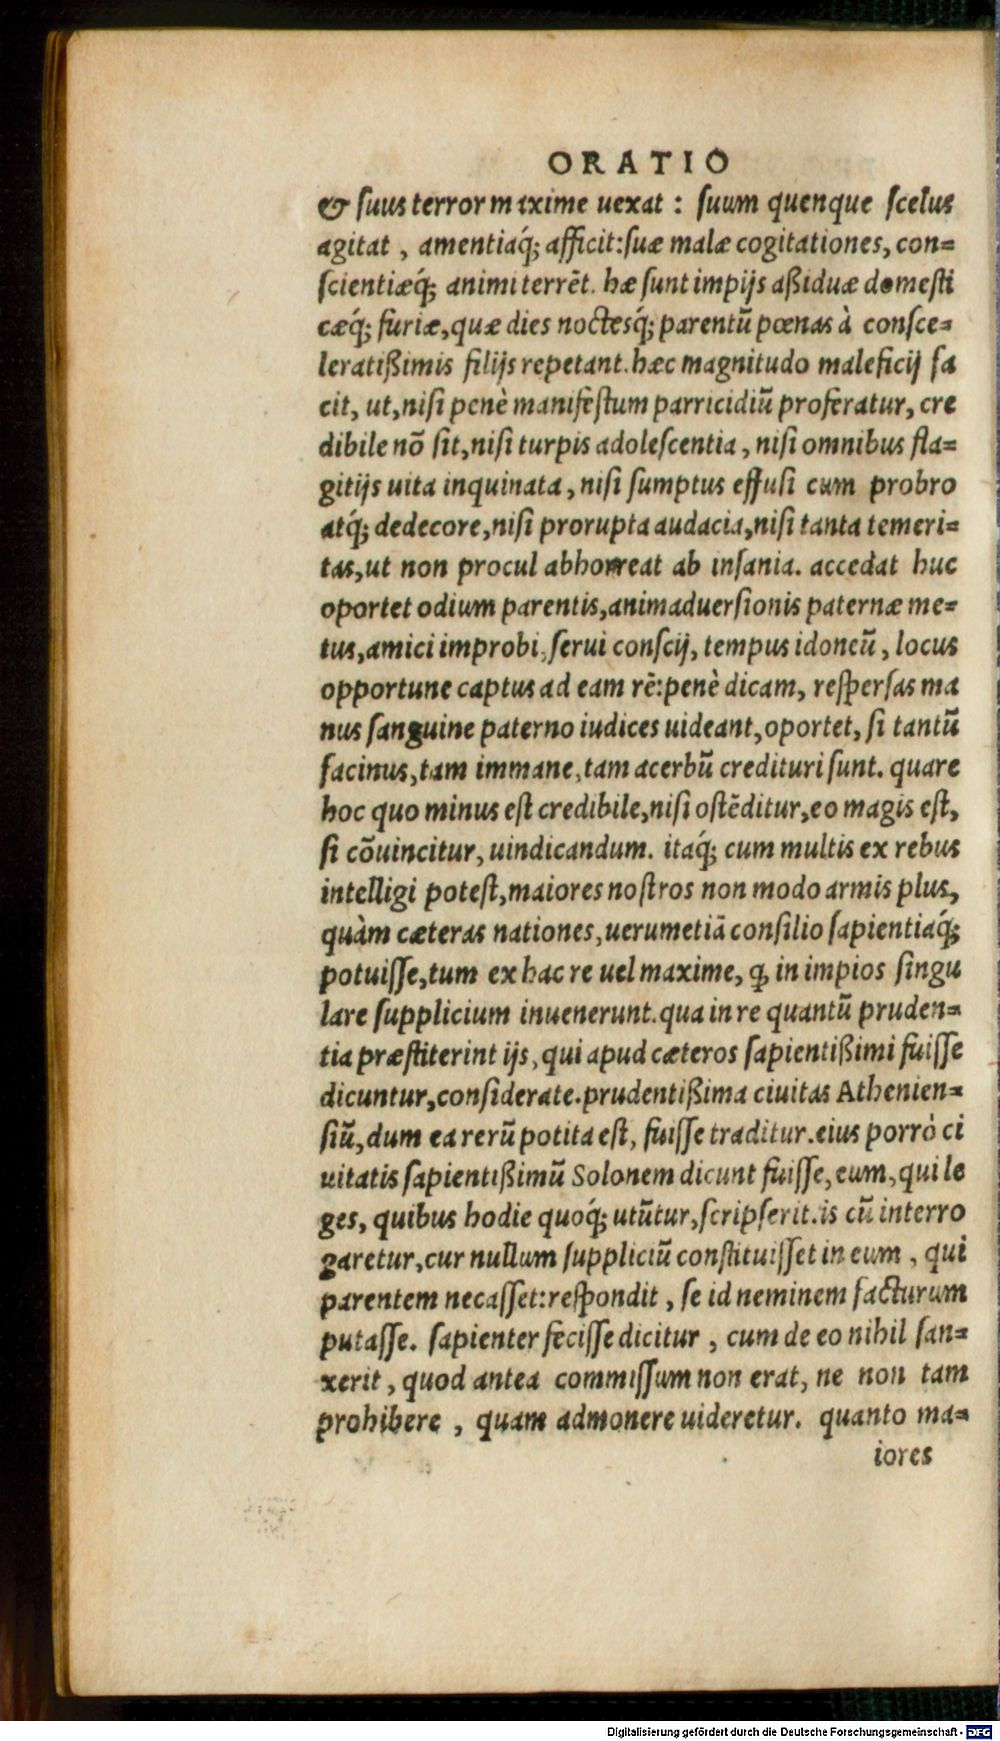 ORATIO
& suus terror maxime uexat : suum quenque scelus
agitat , amentiaq́; afficit:suæ malæ cogitationes, con=
scientiæq́; animi terrēt. hæ sunt impijs aßiduæ domesti
cæq́; furiæ,quæ dies noctesq́; parentū pœnas à consce=
leratißimis filijs repetant.hæc magnitudo maleficij fa
cit, ut,nisi penè manifestum parricidiū proferatur, cre
dibile nō sit,nisi turpis adolescentia , nisi omnibus fla=
gitijs uita inquinata , nisi sumptus effusi cum probro
atq́; dedecore,nisi prorupta audacia,nisi tanta temeri=
tas,ut non procul abhorreat ab insania. accedat huc
oportet odium parentis,animaduersionis paternæ me=
tus,amici improbi, serui conscij, tempus idoneū , locus
opportune captus ad eam rē:penè dicam, respersas ma
nus sanguine paterno iudices uideant,oportet, si tantū
facinus,tam immane,tam acerbū credituri sunt. quare
hoc quo minus est credibile,nisi ostēditur,eo magis est,
si cōuincitur, uindicandum. itaq́; cum multis ex rebus
intelligi potest,maiores nostros non modo armis plus,
quàm cæteras nationes,uerumetiā consilio sapientiaq́;
potuisse,tum ex hac re uel maxime, ꝙ in impios singu
lare supplicium inuenerunt.qua in re quantū pruden=
tia præstiterint ijs, qui apud cæteros sapientißimi fuisse
dicuntur,considerate.prudentißima ciuitas Athenien=
siū,dum ea rerū potita est, fuisse traditur.eius porrò ci
uitatis sapientißimū Solonem dicunt fuisse, eum,qui le
ges, quibus hodie quoq́; utūtur,scripserit.is cū interro
garetur,cur nullum suppliciū constituisset in eum , qui
parentem necasset:respondit , se id neminem facturum
putasse. sapienter fecisse dicitur , cum de eo nihil san=
xerit , quod antea commissum non erat, ne non tam
prohibere , quam admonere uideretur. quanto ma=
iores
Digitalisierung gefördert durch die Deutsche Forschungsgemeinschaft - DFG